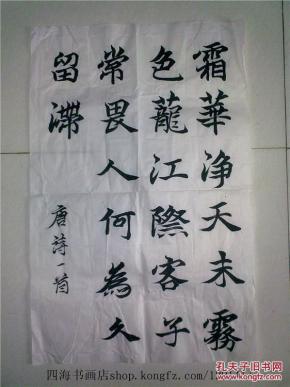 霜華净天末霧
色蘢江際客子
常畏人何為久
留滯
唐詩一首
四海书画店shop.kongfz.com
孔夫子旧书网